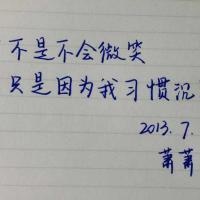 不是不会微笑
只是因为我习惯沉
2013.7.
萧萧